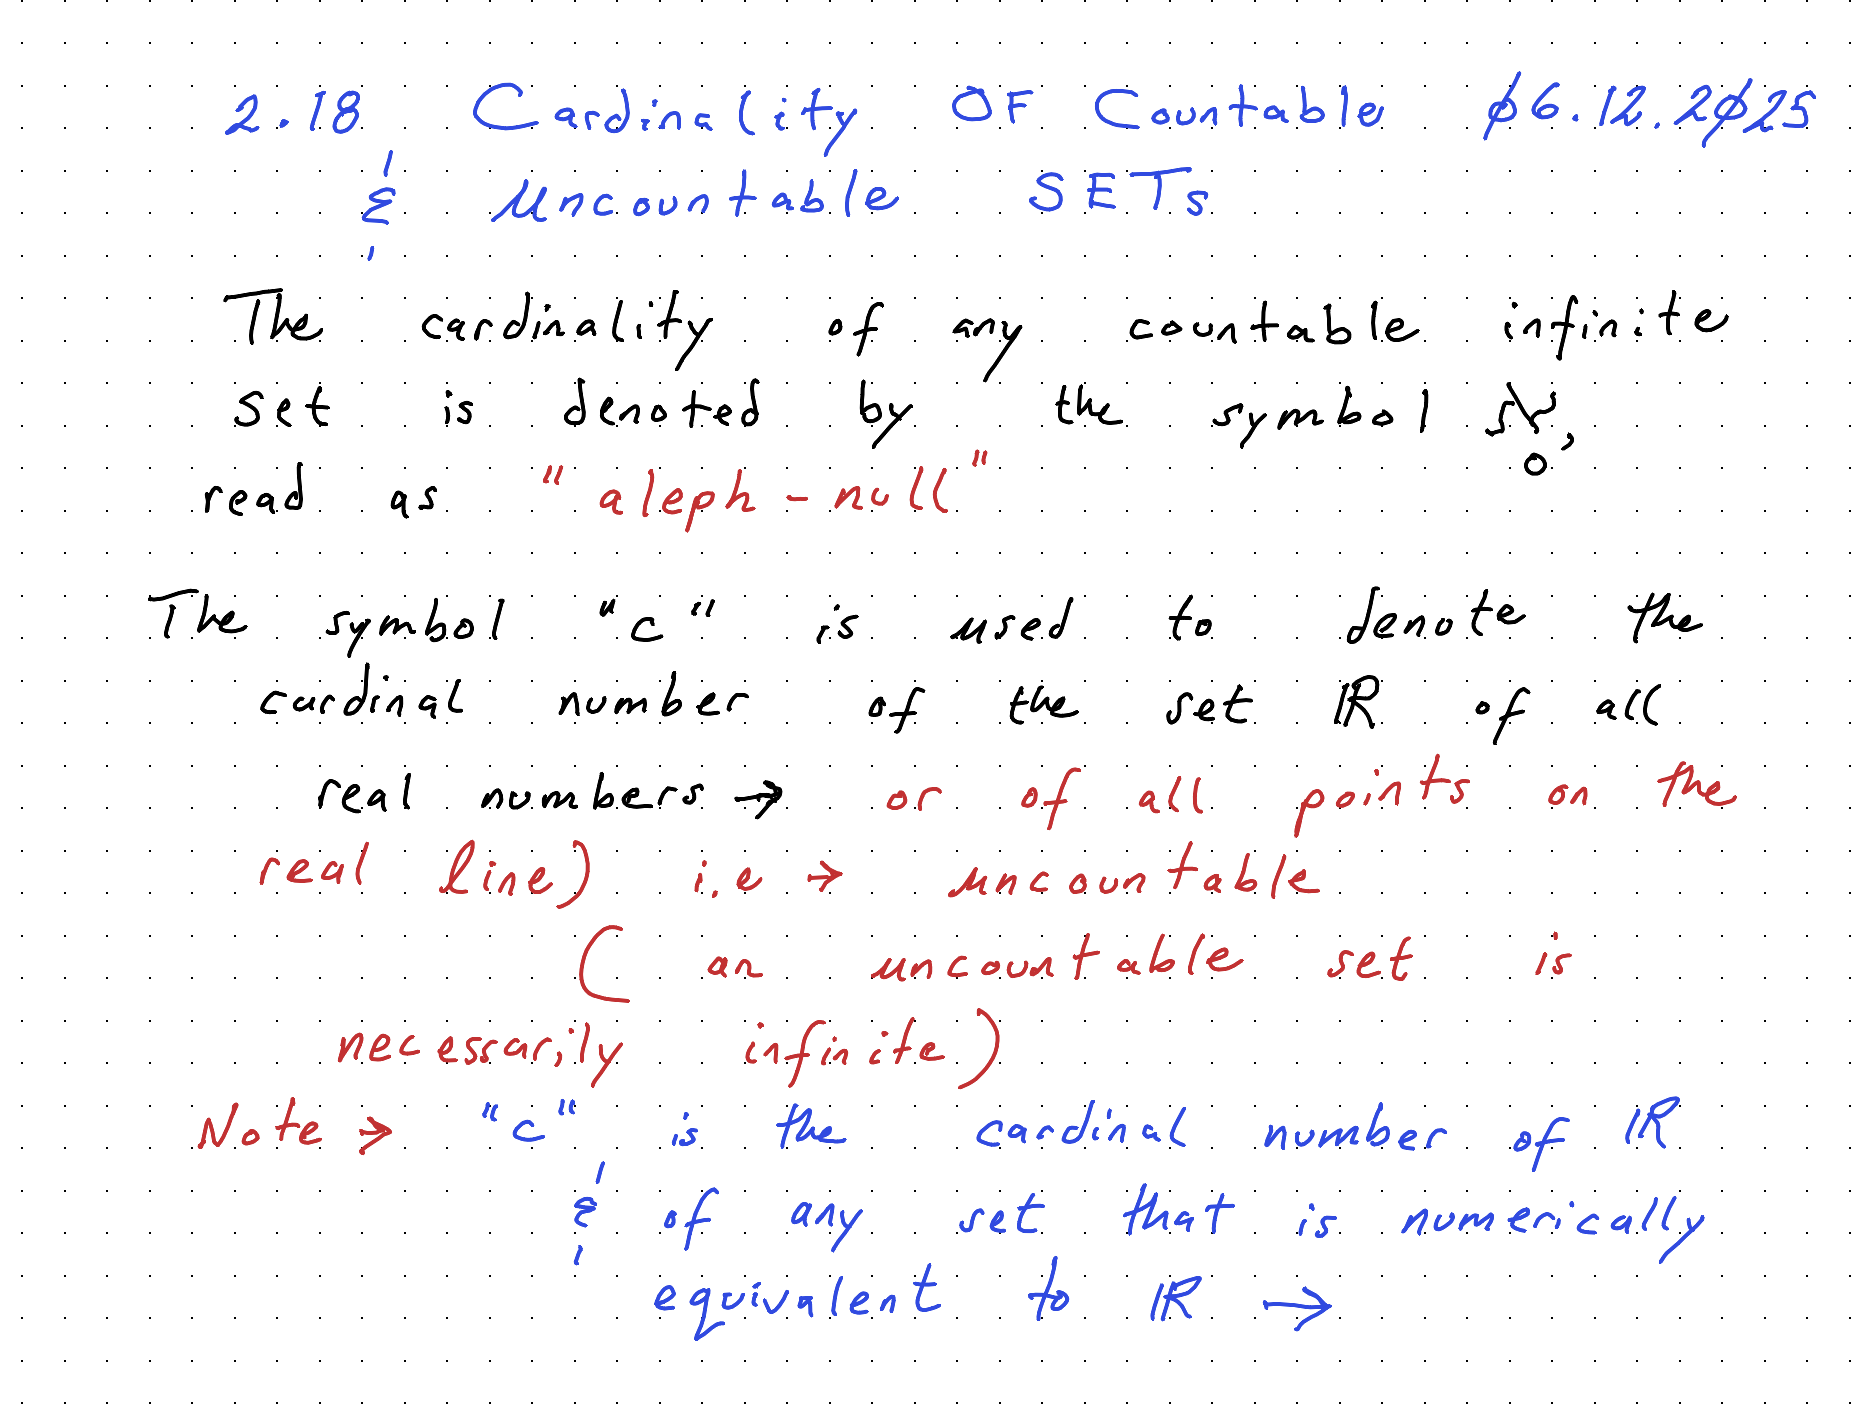 2.18 Cardinality OF Countable ø6.12.2ø25
& Uncountable SETs
The cardinality of any countable infinite
set is denoted by the symbol ℵ₀,
read as "aleph-null"
The symbol "c" is used to denote the
cardinal number of the set ℝ of all
real numbers → or of all points on the
real line) i.e → uncountable
( an uncountable set is
necessarily infinite)
Note → "c" is the cardinal number of ℝ
& of any set that is numerically
equivalent to ℝ →